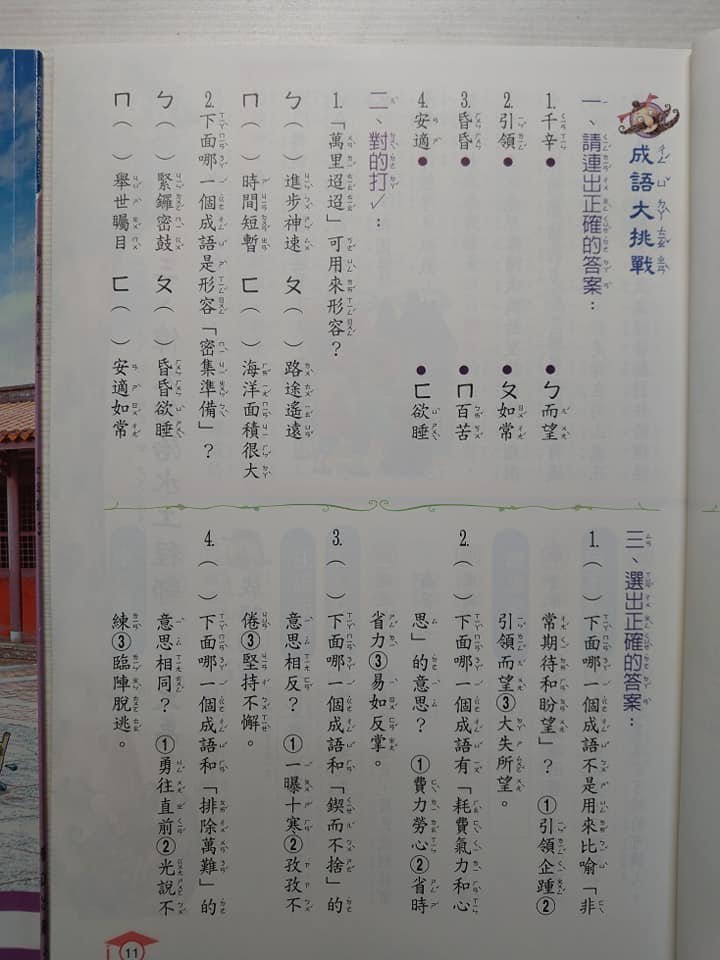 成語大挑戰
一、請連出正確的答案：
1. 千辛● ●ㄅ而望
2. 引領● ●ㄆ如常
3. 昏昏● ●ㄇ百苦
4. 安適● ●ㄈ欲睡
二、對的打✓：
1.「萬里迢迢」可用來形容？
ㄅ（ ）進步神速 ㄆ（ ）路途遙遠
ㄇ（ ）時間短暫 ㄈ（ ）海洋面積很大
2. 下面哪一個成語是形容「密集準備」？
ㄅ（ ）緊鑼密鼓 ㄆ（ ）昏昏欲睡
ㄇ（ ）舉世矚目 ㄈ（ ）安適如常
三、選出正確的答案：
1.（ ）下面哪一個成語不是用來比喻「非
常期待和盼望」？ ①引領企踵②
引領而望③大失所望。
2.（ ）下面哪一個成語有「耗費氣力和心
思」的意思？ ①費力勞心②省時
省力③易如反掌。
3.（ ）下面哪一個成語和「鍥而不捨」的
意思相反？ ①一曝十寒②孜孜不
倦③堅持不懈。
4.（ ）下面哪一個成語和「排除萬難」的
意思相同？ ①勇往直前②光說不
練③臨陣脫逃。
11